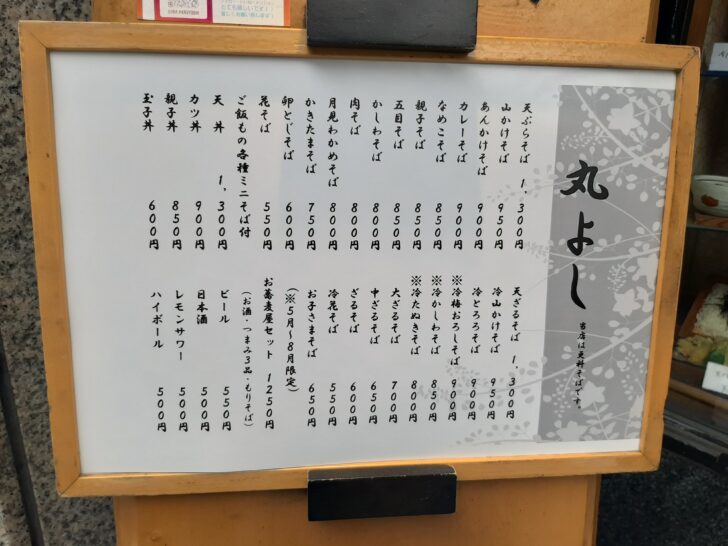 丸よし
当店は更科そばです。
天ぷらそば 1,300円
山かけそば 950円
あんかけそば 900円
カレーそば 900円
なめこそば 850円
親子そば 850円
五目そば 850円
かしわそば 800円
肉そば 800円
月見わかめそば 800円
かきたまそば 750円
卵とじそば 600円
花そば 550円
ご飯もの各種ミニそば付
天 丼 1,300円
カツ丼 900円
親子丼 850円
玉子丼 600円
天ざるそば 1,300円
冷山かけそば 950円
冷とろろそば 900円
※冷梅おろしそば 900円
※冷かしわそば 850円
※冷たぬきそば 800円
大ざるそば 700円
中ざるそば 650円
ざるそば 600円
冷花そば 550円
お子さまそば 650円
(※5月~8月限定)
お蕎麦屋セット 1250円
(お酒・つまみ3品・もりそば)
ビール 550円
日本酒 500円
レモンサワー 500円
ハイボール 500円